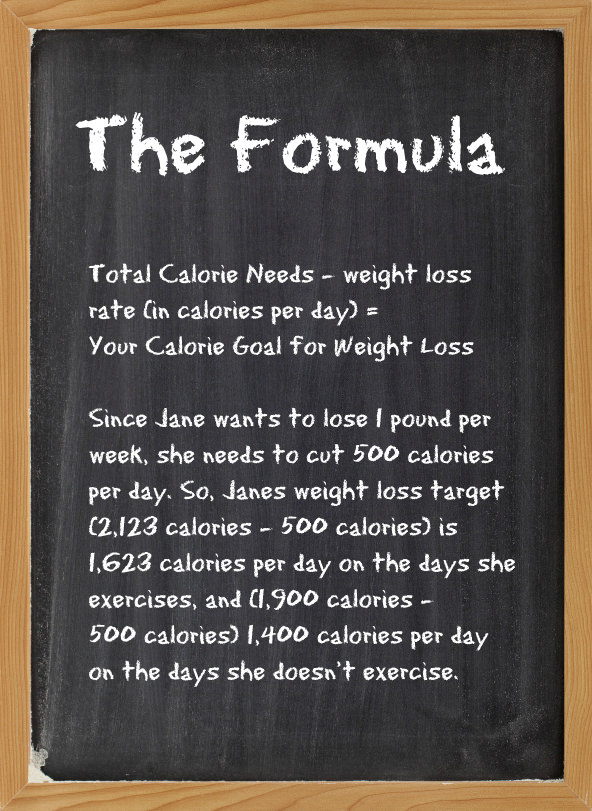 The Formula
Total Calorie Needs - weight loss
rate (in calories per day) =
Your Calorie Goal for Weight Loss
Since Jane wants to lose 1 pound per
week, she needs to cut 500 calories
per day. So, Janes weight loss target
(2,123 calories - 500 calories) is
1,623 calories per day on the days she
exercises, and (1,900 calories -
500 calories) 1,400 calories per day
on the days she doesn't exercise.